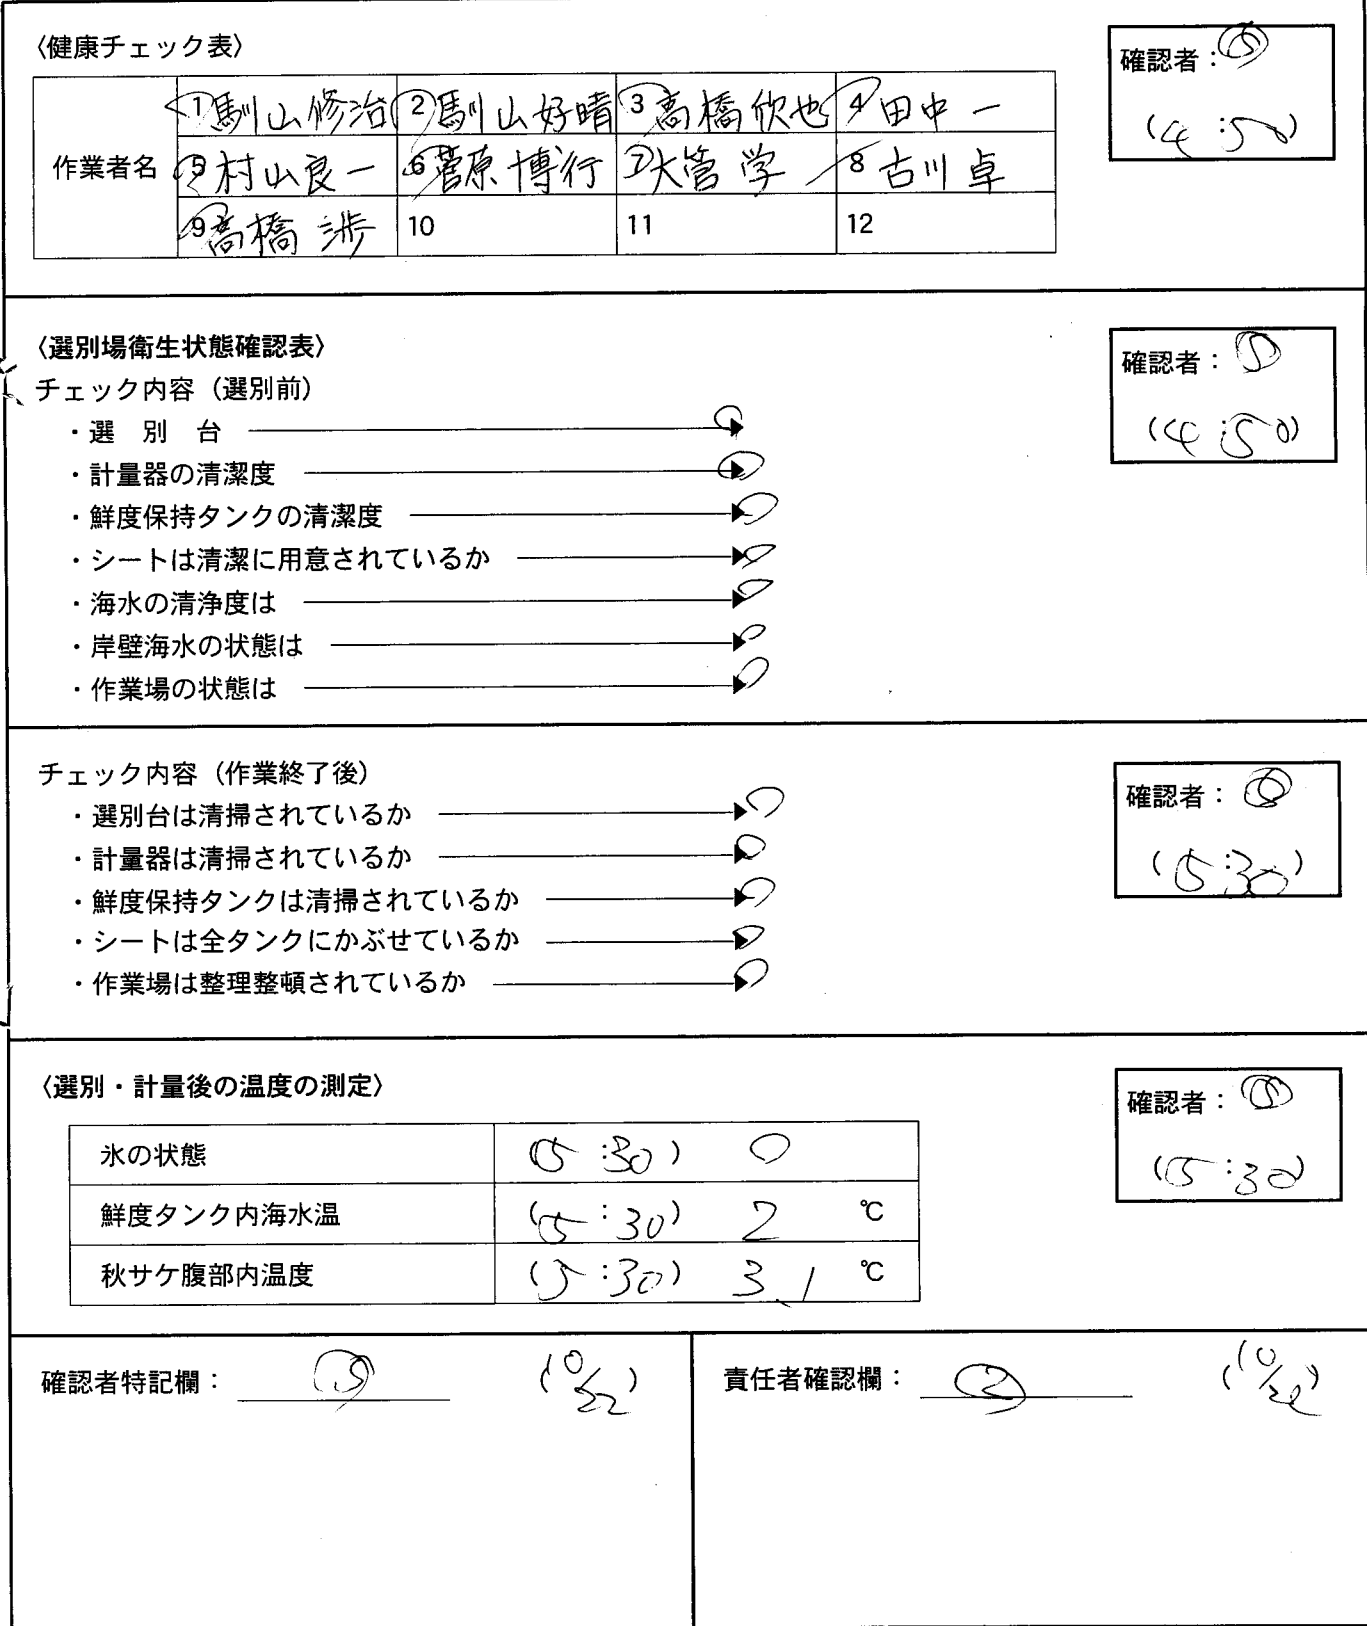 〈健康チェック表〉
確認者：⑤
(4:50)
作業者名
1 馴山修治 2 馴山好晴 3 高橋欣也 4 田中一
5 村山良一 6 菅原博行 7 大管学 8 古川卓
9 高橋渉 10 11 12
〈選別場衛生状態確認表〉
確認者：⑤
(4:50)
チェック内容（選別前）
・選別台 ○
・計量器の清潔度 ○
・鮮度保持タンクの清潔度 ○
・シートは清潔に用意されているか ○
・海水の清浄度は ○
・岸壁海水の状態は ○
・作業場の状態は ○
チェック内容（作業終了後）
確認者：
(5:30)
・選別台は清掃されているか ○
・計量器は清掃されているか ○
・鮮度保持タンクは清掃されているか ○
・シートは全タンクにかぶせているか ○
・作業場は整理整頓されているか ○
〈選別・計量後の温度の測定〉
確認者：⑤
(5:30)
氷の状態 (5:30) ○
鮮度タンク内海水温 (5:30) 2 ℃
秋サケ腹部内温度 (5:30) 3.1 ℃
確認者特記欄： ⑤ (10/22)
責任者確認欄： ② (10/22)